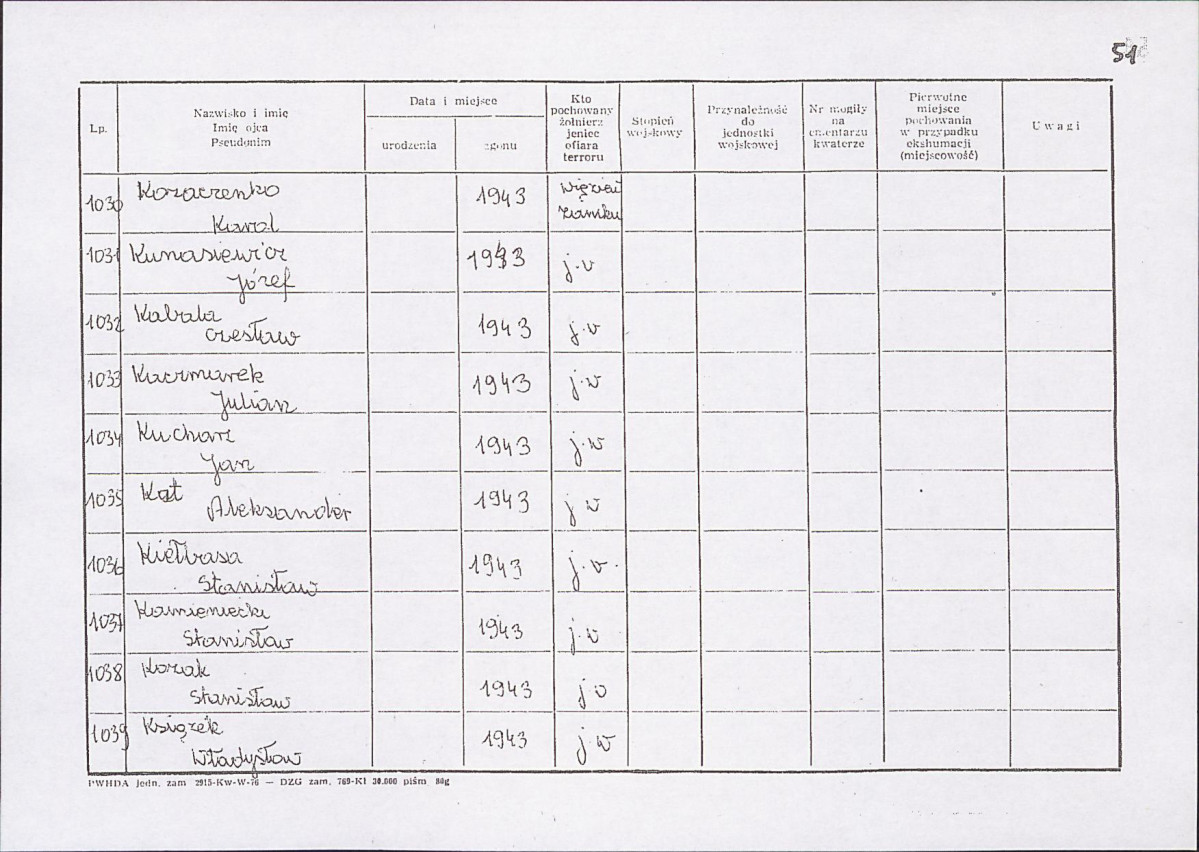 51
Lp.
Nazwisko i imię
Imię ojca
Pseudonim
Data i miejsce
urodzenia
zgonu
Kto
pochowany
żołnierz
jeniec
ofiara
terroru
Stopień
wojskowy
Przynależność
do
jednostki
wojskowej
Nr mogiły
na
cmentarzu
kwaterze
Pierwotne
miejsce
pochowania
w przypadku
ekshumacji
(miejscowość)
Uwagi
1030 Kozaczenko 1943 więzień
Karol Zamku
1031 Kunasiewicz 1943 j.w
Józef
1032 Kabała 1943 j.w
Czesław
1033 Kaczmarek 1943 j.w
Julian
1034 Kucharz 1943 j.w
Jan
1035 Kot 1943 j w
Aleksander
1036 Kiełbasa 1943 j.w.
Stanisław
1037 Kamieniecki 1943 j.w
Stanisław
1038 Kozak 1943 j w
Stanisław
1039 Książek 1943 j.w
Władysław
PWHDA jedn. zam 2915-Kw-W-76 — DZG zam. 769-KI 30.000 piśm 80g